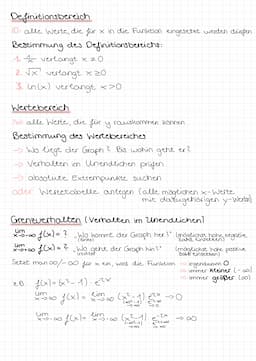 Definitionsbereich
ID: alle Werte, die für x in die Funktion eingesetzt werden dürfen
Bestimmung des Definitionsbereichs:
1. verlangt x ≠ 0
2. √x verlangt x ≥ 0
3. ln(x) verlangt x > 0
Wertebereich
alle Werte, die für y rauskommen können
Bestimmung des Wertebereiches
→ Wo liegt der Graph? Bis wohin geht er?
→ Verhalten im Unendlichen prüfen
→ absolute Extrempunkte suchen
oder Wertetabelle anlegen (alle möglichen x-Werte
mit dazugehörigen y-Werten)
Grenzverhalten (Verhalten im Unendlichen)
lim x→-∞ f(x) = ? "Wo kommt der Graph her?" (möglichst hohe negative Zahl einsetzen)
lim x→∞ f(x) = ? "Wo geht der Graph hin?" (möglichst hohe positive Zahl einsetzen)
Setzt man ∞/-∞ für x ein, wird die Funktion → irgendwann 0
→ immer kleiner (-∞)
→ immer größer (∞)
z.B. f(x) = (x² - 1)
lim x→-∞ f(x) = lim x→-∞ (x² - 1) → 0
lim x→∞ f(x) = lim x→∞ (x² - 1) → ∞